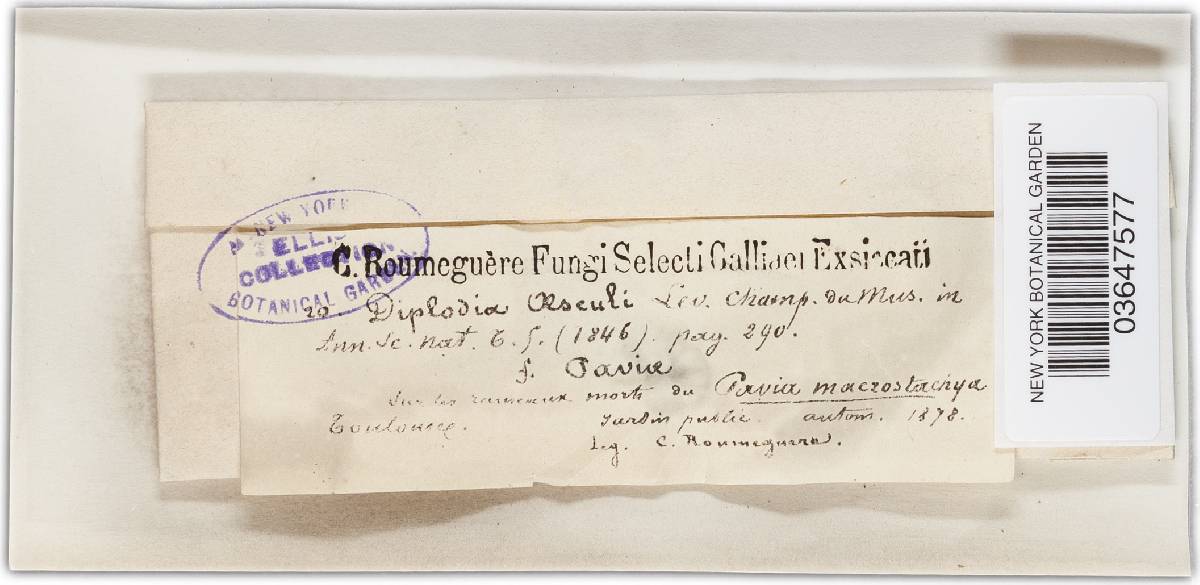 NEW YORK
ELLIS
COLLECTION
BOTANICAL GARDEN
C. Roumeguère Fungi Selecti Galliaei Exsiccati
20. Diplodia Æsculi Lev. Champ. du Mus. in
Ann. Sc. nat. T. 5. (1846). pag. 290.
f. Paviæ
Sur les rameaux morts du Pavia macrostachya
Toulouse. Jardin public. autom. 1878.
Leg. C. Roumeguere.
NEW YORK BOTANICAL GARDEN
03647577